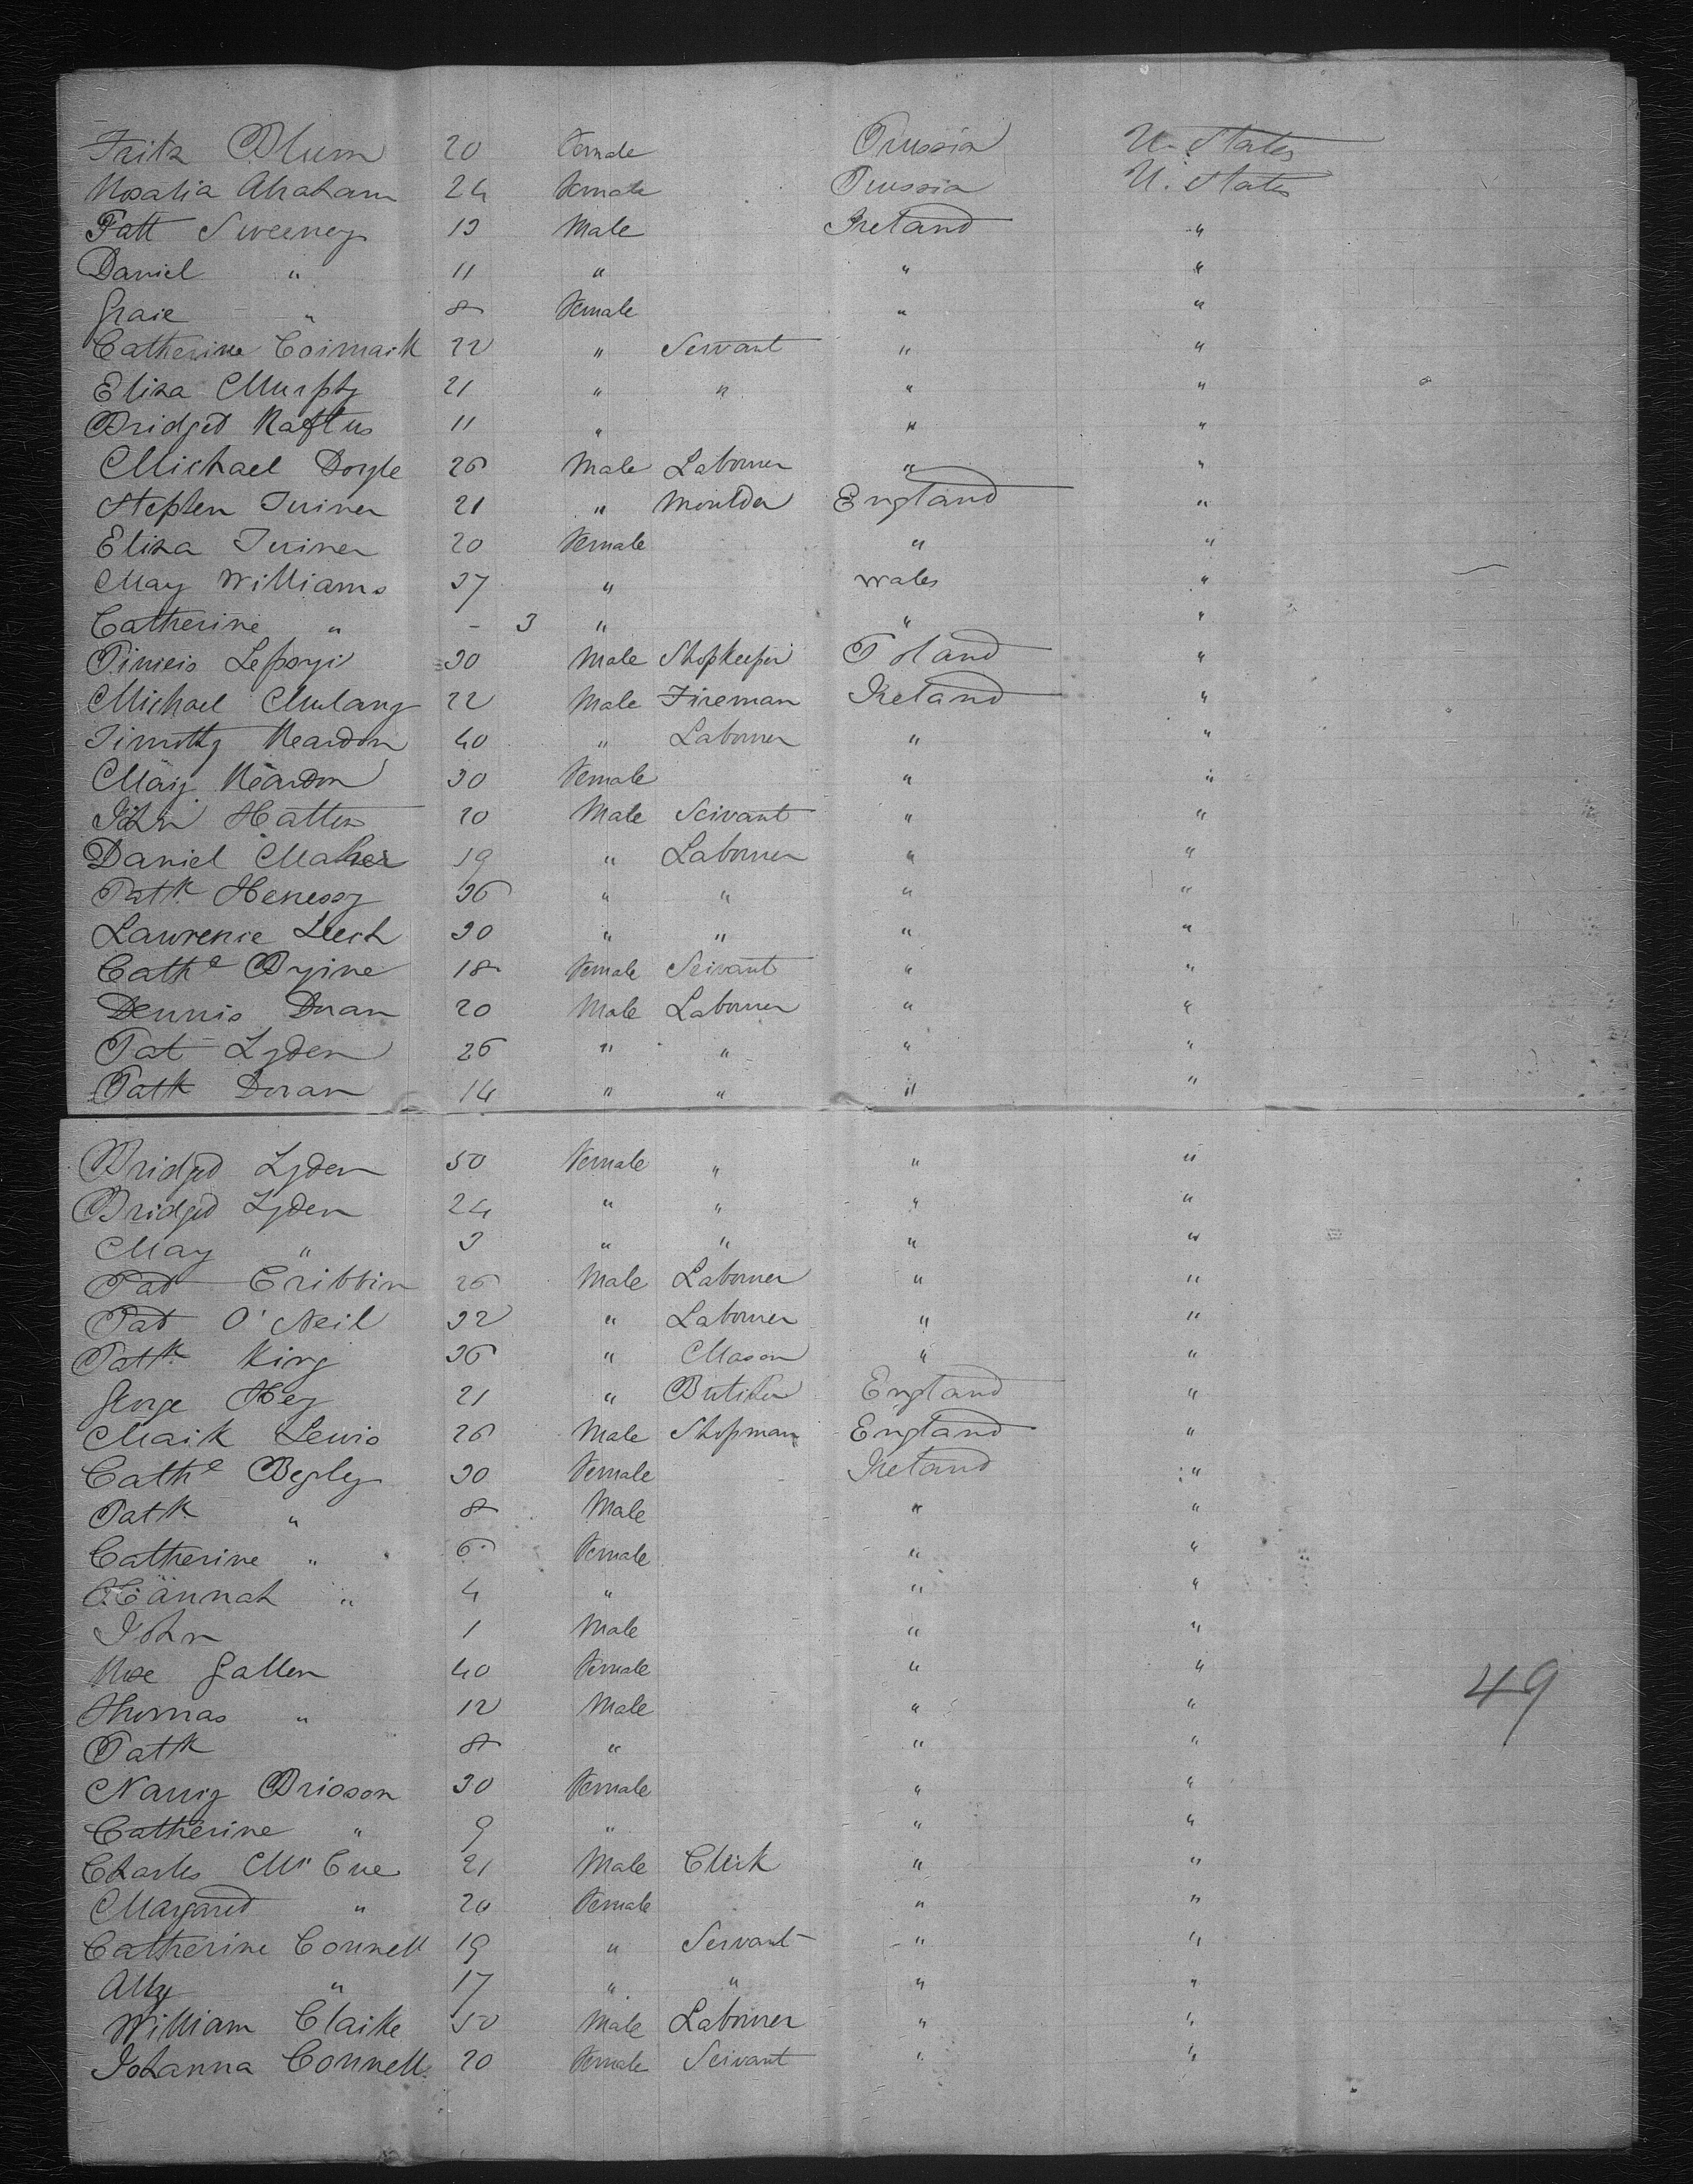 Fritz Blum 20 Female Prussia U. States
Rosalia Abraham 24 Female Prussia U. States
Patt Sweeney 13 Male Ireland "
Daniel " 11 " " "
Graie " 8 Female " "
Catherine Cormack 22 " Servant " "
Eliza Murphy 21 " " " "
Bridget Raftus 11 " " "
Michael Doyle 26 Male Labourer " "
Stephen Turner 21 " Moulder England "
Eliza Turner 20 Female " "
Mary Williams 37 " Wales "
Catherine " - 3 " " "
30 Male Shopkeeper Poland "
Michael Mulany 22 Male Fireman Ireland "
Timothy Reardon 40 " Labourer " "
Mary Reardon 30 Female " "
John Hatten 20 Male Servant " "
Daniel Maher 19 " Labourer " "
Patk Henessy 36 " " " "
Lawrence Leech 30 " " " "
Cathe Byrne 18 Female Servant " "
Dennis Doran 20 Male Labourer " "
Pat Lyden 26 " " " "
Patk Doran 14 " " " "
Bridget Lyden 50 Female " " "
Bridget Lyden 24 " " " "
Mary " 3 " " " "
Pat Cribbin 26 Male Labourer " "
Pat O'Neil 32 " Labourer " "
Patk King 36 " Mason " "
George Hey 21 " Butcher England "
Mark Lewis 26 Male Shopman England "
Cathe Begley 30 Female Ireland "
Patk " 8 Male " "
Catherine " 6 Female " "
Hannah " 4 " " "
John 1 Male " "
Rose Gallen 40 Female " "
Thomas " 12 Male " "
49
Patk 8 " " "
Nancy Brisson 30 Female " "
Catherine " 9 " " "
Charles Mc Cue 21 Male Clerk " "
Margaret " 20 Female " "
Catherine Connell 19 " Servant " "
Ally " 17 " " " "
William Clarke 50 Male Labourer " "
Johanna Connell 20 Female Servant " "